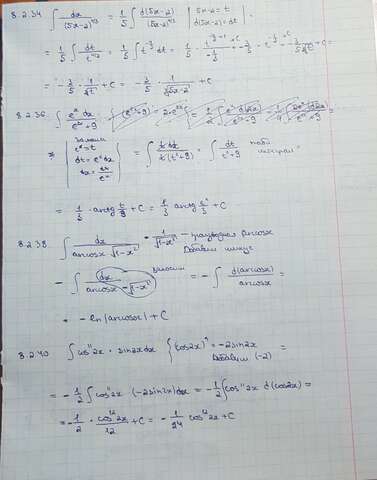 8.2.34 ∫ dx/(5x-2)^{4/3} = 1/5 ∫ d(5x-2)/(5x-2)^{4/3} = | 5x-2 = t d(5x-2) = dt | =
= 1/5 ∫ dt/t^{4/3} = 1/5 ∫ t^{-4/3} dt = 1/5 ·
+ C = - 3/5 · 1/∛t + C = - 3/5 · 1/∛(5x-2) + C
8.2.36 ∫ e^x dx/(e^{2x}+9) =
замена
| e^x = t dt = e^x dx dx = dt/e^x | = ∫ t dt/t(t²+9) = ∫ dt/(t²+9) =
= 1/3 · arctg t/3 + C = 1/3 arctg e^x/3 + C
8.2.38 ∫ dx/(arccosx · √(1-x²)) = 1/√(1-x²) - производная arccosx
Добавим минус
- ∫ dx/(arccosx · -√(1-x²)) = замени = - ∫ d(arccosx)/arccosx =
= - ln|arccosx| + C
8.2.40 ∫ cos^{11}2x · sin2x dx { (cos2x)' = -2sin2x Добавим (-2) =
= - 1/2 ∫ cos^{11}2x · (-2sin2x)dx = - 1/2 ∫ cos^{11}2x d(cos2x) =
= - 1/2 · cos^{12}2x/12 + C = - 1/24 cos^{12}2x + C